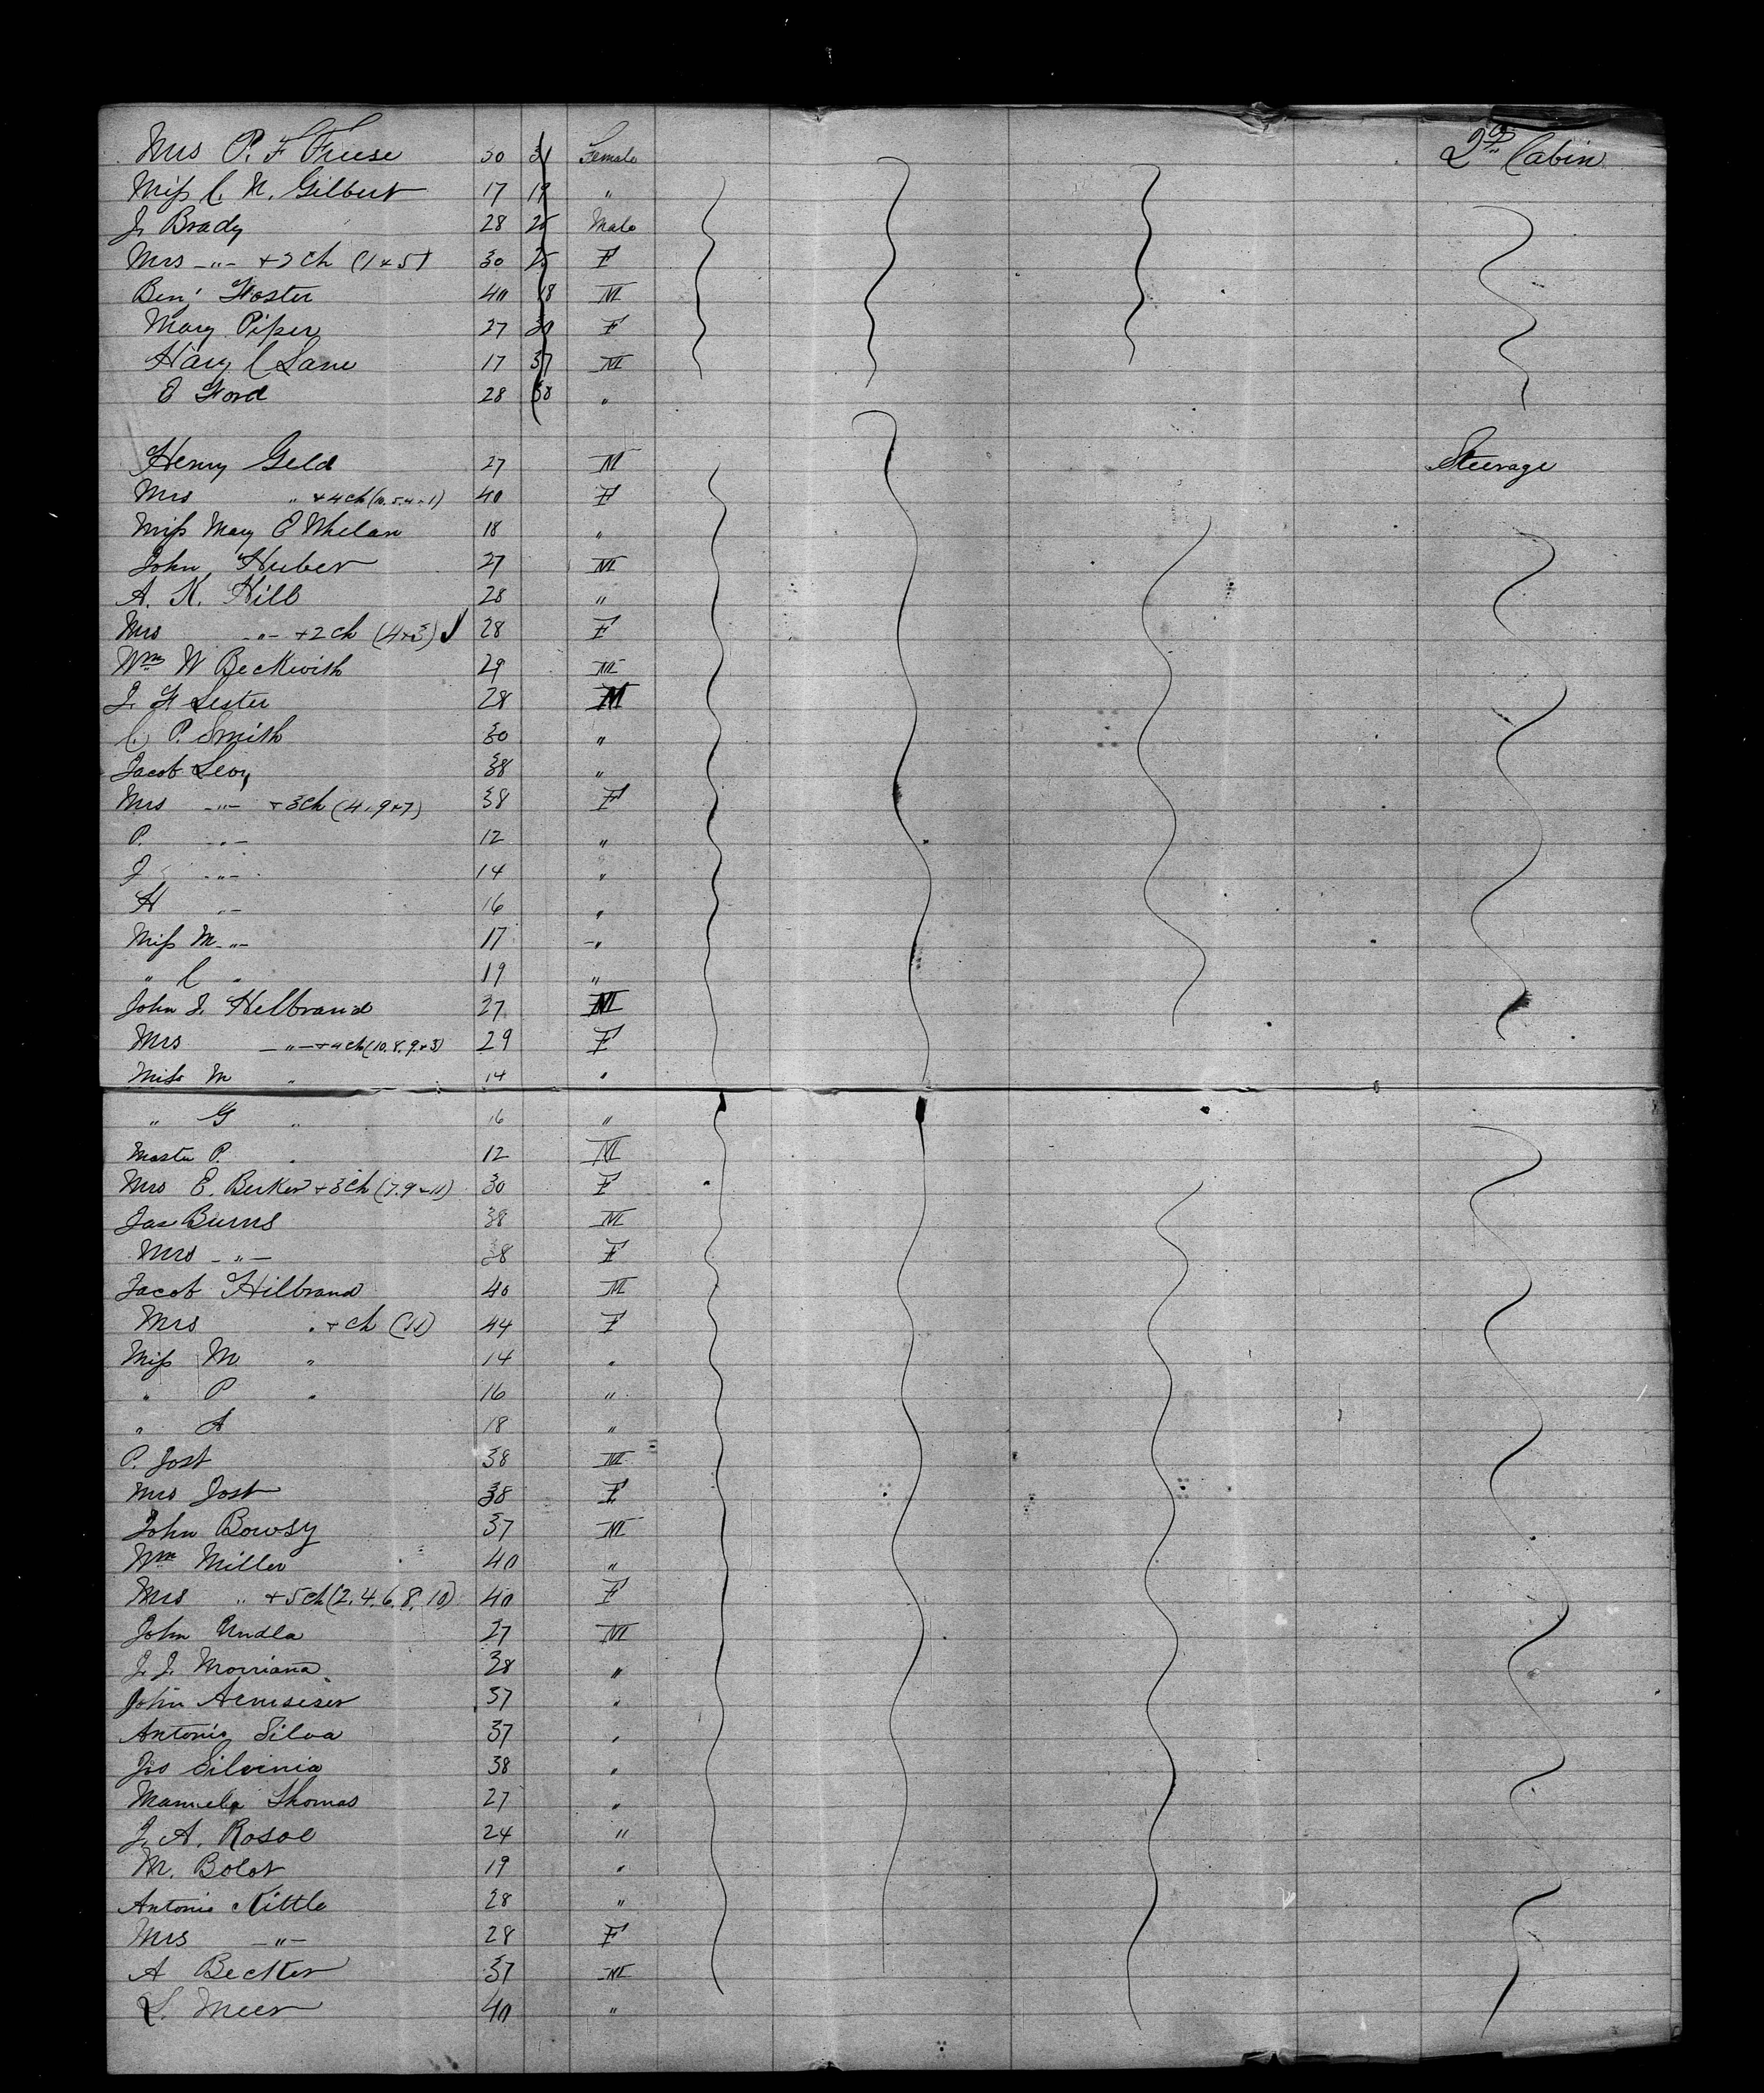 Mrs P. F Friese 30 31 Female 2nd Cabin
Miss C. N. Gilbert 17 19 "
J. Brady 28 25 Male
Mrs -"- + 2 Ch (1 + 5) 30 25 F
Benj Foster 40 18 M
Mary Piper 27 30 F
Hary C Lane 17 37 M
E Ford 28 38 "
Henry Geld 27 M Steerage
Mrs " + 4 ch (10. 5. 4 + 1) 40 F
Miss Mary E Whelan 18 "
John Huber 27 M
A. K. Hill 28 "
Mrs -"- + 2 ch (4 + 3) 28 F
Wm W Beckwith 29 M
J. F Lester 28 M
C P. Smith 30 "
Jacob Levy 38 "
Mrs -"- + 3 ch (4. 9 + 7) 38 F
P. -"- 12 "
J -"- 14 "
H -"- 16 "
Miss M -"- 17 -"
" C " 19 "
John J. Helbrand 27 M
Mrs -"- + 4 ch (10. 8. 9. + 3) 29 F
Miss M " 14 "
" G " 16 "
Master P. " 12 M
Mrs E. Berker + 3 ch (7. 9 - 11) 30 F
Jas Burns 38 M
Mrs -"- 38 F
Jacob Hilbrand 40 M
Mrs " + ch (11) 44 F
Miss M " 14 "
" P " 16 "
" A 18 "
P. Jost 38 M
Mrs Jost 38 F
John Bowsy 37 M
Wm Miller 40 "
Mrs " + 5 ch (2. 4. 6. 8. 10) 40 F
John Undla 27 M
J. J. Morriana 38 "
John 37 "
Antonio Silva 37 "
Jos Silvinia 38 "
Manuela Thomas 27 "
J. A. Rosoe 24 "
M. Bolot 19 "
Antonio Kittle 28 "
Mrs -"- 28 F
A Beckter 37 M
L. Meer 40 "